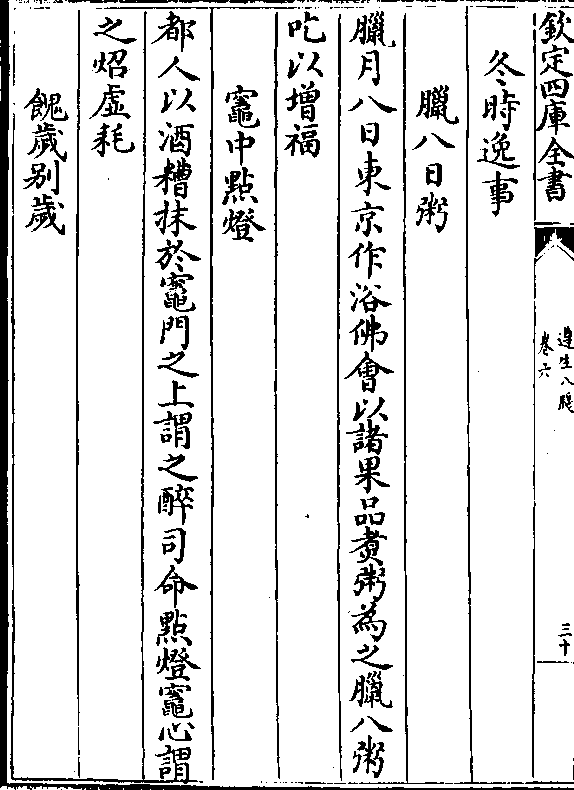 欽定四庫全書
遵生八牋
卷六
三十
冬時逸事
臘八日粥
臘月八日東京作浴佛會以諸果品煑粥為之臘八粥
吃以增福
竈中點燈
都人以酒糟抹於竈門之上謂之醉司命點燈竈心謂
之炤虛耗
餽歲别歲